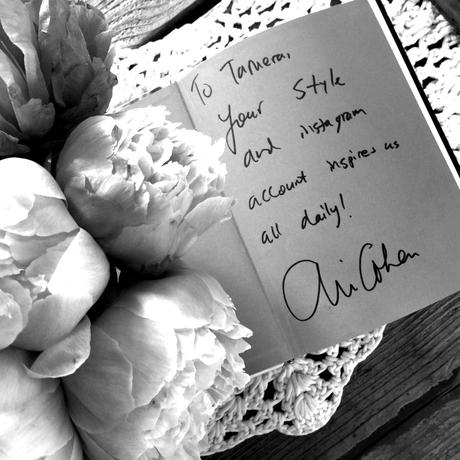 To Tamera,
Your Style
and instagram
account inspires us
all daily!
Ari Cohen